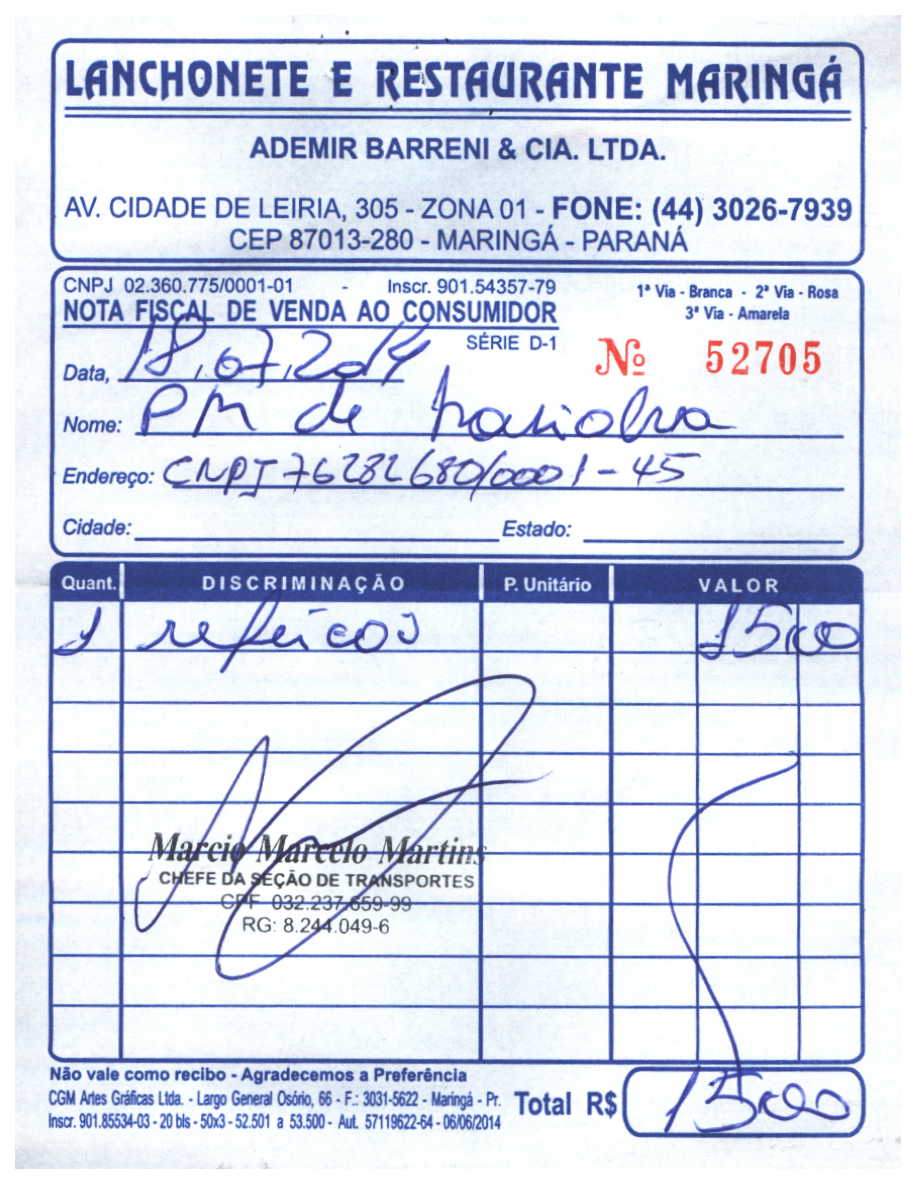 LANCHONETE E RESTAURANTE MARINGÁ
ADEMIR BARRENI & CIA. LTDA.
AV. CIDADE DE LEIRIA, 305 - ZONA 01 - FONE: (44) 3026-7939
CEP 87013-280 - MARINGÁ - PARANÁ
CNPJ 02.360.775/0001-01 - Inscr. 901.54357-79
NOTA FISCAL DE VENDA AO CONSUMIDOR
SÉRIE D-1
1ª Via - Branca - 2ª Via - Rosa
3ª Via - Amarela
Nº 52705
Data, 18,07,2014
Nome: PM de
Endereço: CNPJ 76282680/0001-45
Cidade: Estado:
Quant. DISCRIMINAÇÃO P. Unitário VALOR
1 refeicos 15,00
Marcio Marcelo Martins
CHEFE DA SEÇÃO DE TRANSPORTES
CPF 032.237.659-99
RG: 8.244.049-6
Não vale como recibo - Agradecemos a Preferência
CGM Artes Gráficas Ltda. - Largo General Osório, 66 - F.: 3031-5622 - Maringá - Pr.
Inscr. 901.85534-03 - 20 bls - 50x3 - 52.501 a 53.500 - Aut. 57119622-64 - 06/06/2014
Total R$ 15,00